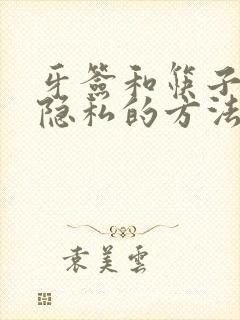 牙签和筷子
隐私的方法
袁美雲